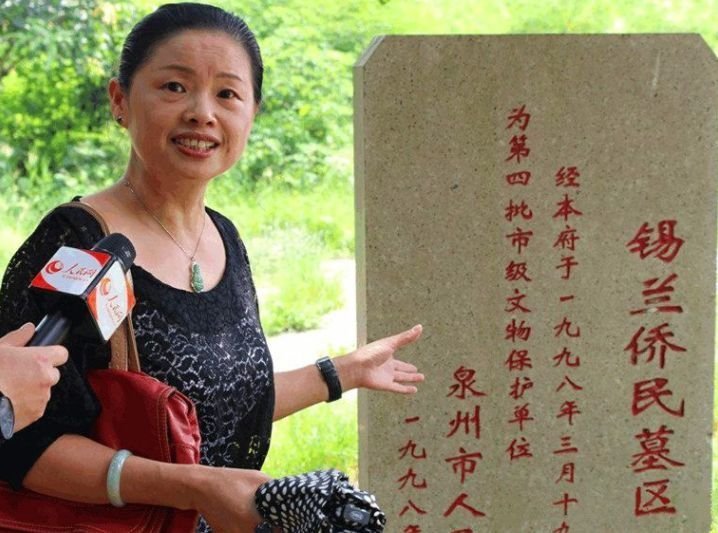 锡兰侨民墓区
经本府于一九九八年三月十九
为第四批市级文物保护单位
泉州市人
一九九八年
人民网